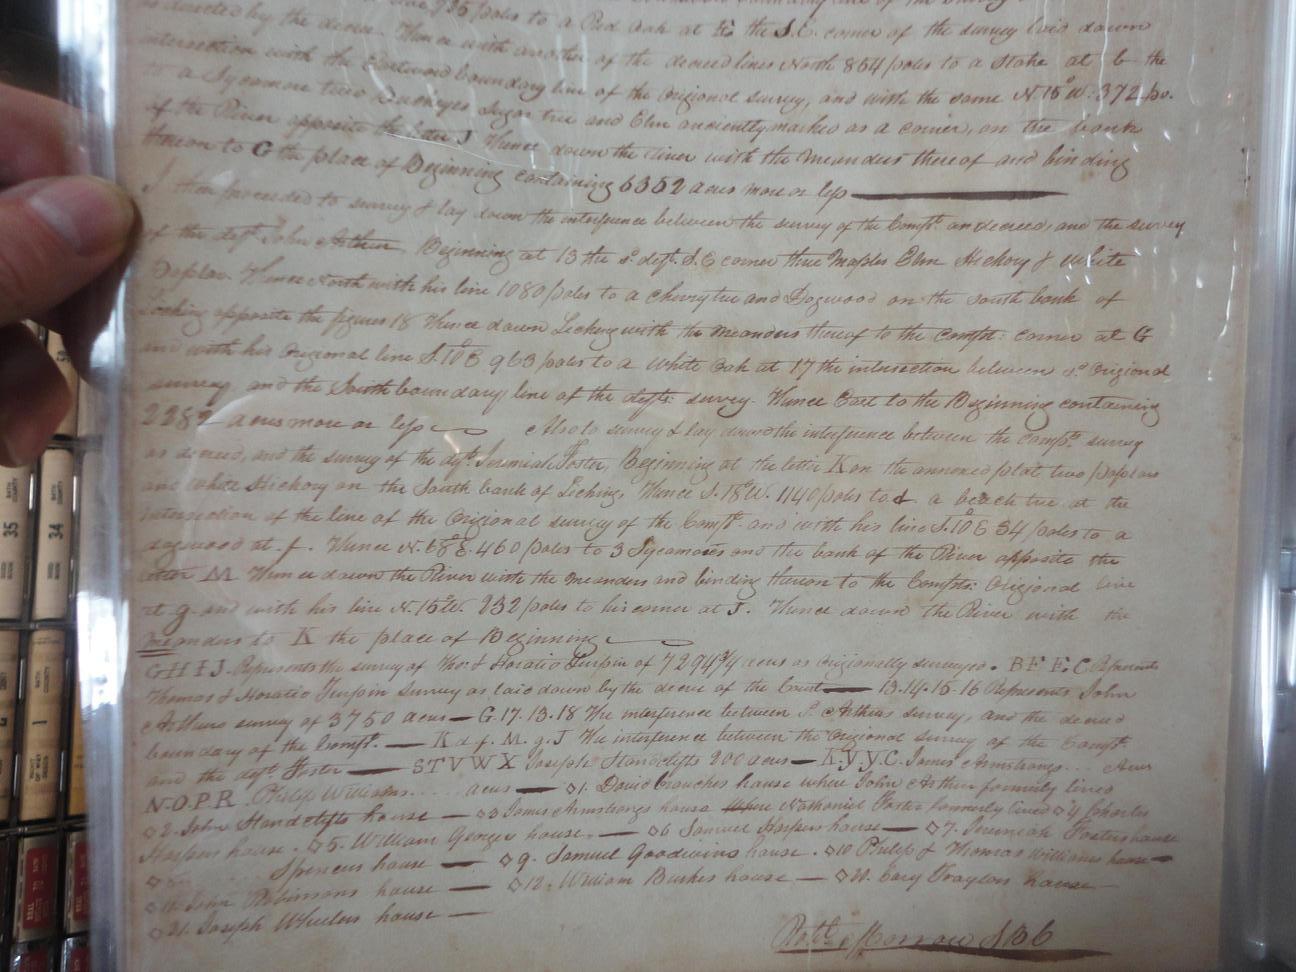 as directed by the decree. Thence with another of the decreed lines North 854 poles to a Stake at b the
intersection with the Eastward boundary line of the Origional survey, and with the same N. 15° W. 372 po.
to a Sycamore two Buckeyes Sugar tree and Elm anciently marked as a corner, on the bank
of the River opposite the letter J Thence down the river with the meanders thereof and binding
thereon to G the place of Beginning containing 6352 acres more or less
I then proceeded to survey & lay down the interference between the survey of the Compt. as decreed, and the survey
of the deft. John Arthur Beginning at 13 the sd. deft. S.E corner three Maples Elm Hickory & White
Poplar. Thence North with his line 1080 poles to a cherry tree and Dogwood on the south bank of
Licking opposite the figures 18 Thence down Licking with the meanders thereof to the Compts: corner at G
and with his Origional line S. 10° E 963 poles to a White Oak at 17 the intersection between sd. Origional
survey, and the South boundary line of the defts survey. Thence East to the Beginning containing
2282 acres more or less Also to survey & lay down the interference between the Compts. survey
as decreed, and the survey of the deft. Jeremiah Foster, Beginning at the letter K on the annexed plat two poplars
and white Hickory on the South bank of Licking, Thence S. 18° W. 1140 poles to d a beach tree at the
intersection of the line of the Origional survey of the Compt. and with his line S. 10° E 54 poles to a
dogwood at f. Thence N. 68° E. 460 poles to 3 Sycamores and the bank of the River opposite the
letter M Thence down the River with the meanders and binding thereon to the Compts: Origional line
at g. and with his line N. 15° W. 232 poles to his corner at J. Thence down the River with the
meanders to K the place of Beginning
G H I J. Represents the survey of Thos. & Horatio Turpin of 7294 3/4 acres as origionally surveyed. B F E. C Represents
Thomas & Horatio Turpin survey as laid down by the decree of the Court 13.14.15.16 Represents John
Arthurs survey of 3750 acres G. 17. 13. 18 The interference between Sd. Arthurs survey, and the decreed
boundary of the Compt. K d f. M. g. J The interference between the Origional survey of the Compt.
and the deft. Foster S T V W X Joseph Standclifts 200 acres K. y. y. C. James Armstrongs .... Acres
N. O. P. R. Philip Williams ..... acres ◊1. David Crouches house where John Arthur formerly lived
◊2. John Standclifts house ◊3 James Armstrongs house where Nathaniel Foster formerly lived ◊4 Charles
Harpers house. ◊5. William Georges house. ◊6 Samuel Harpers house ◊7. Jeremiah Fosters house
◊ Spencers house ◊9. Samuel Goodwins house. ◊10 Philip & Thomas Williams house
◊11. John Robinsons house ◊12. William Burkes house ◊20. Cary Draytons house
◊21. Joseph Wheelers house
Morrow S B C
35
34
1
BATH COUNTY